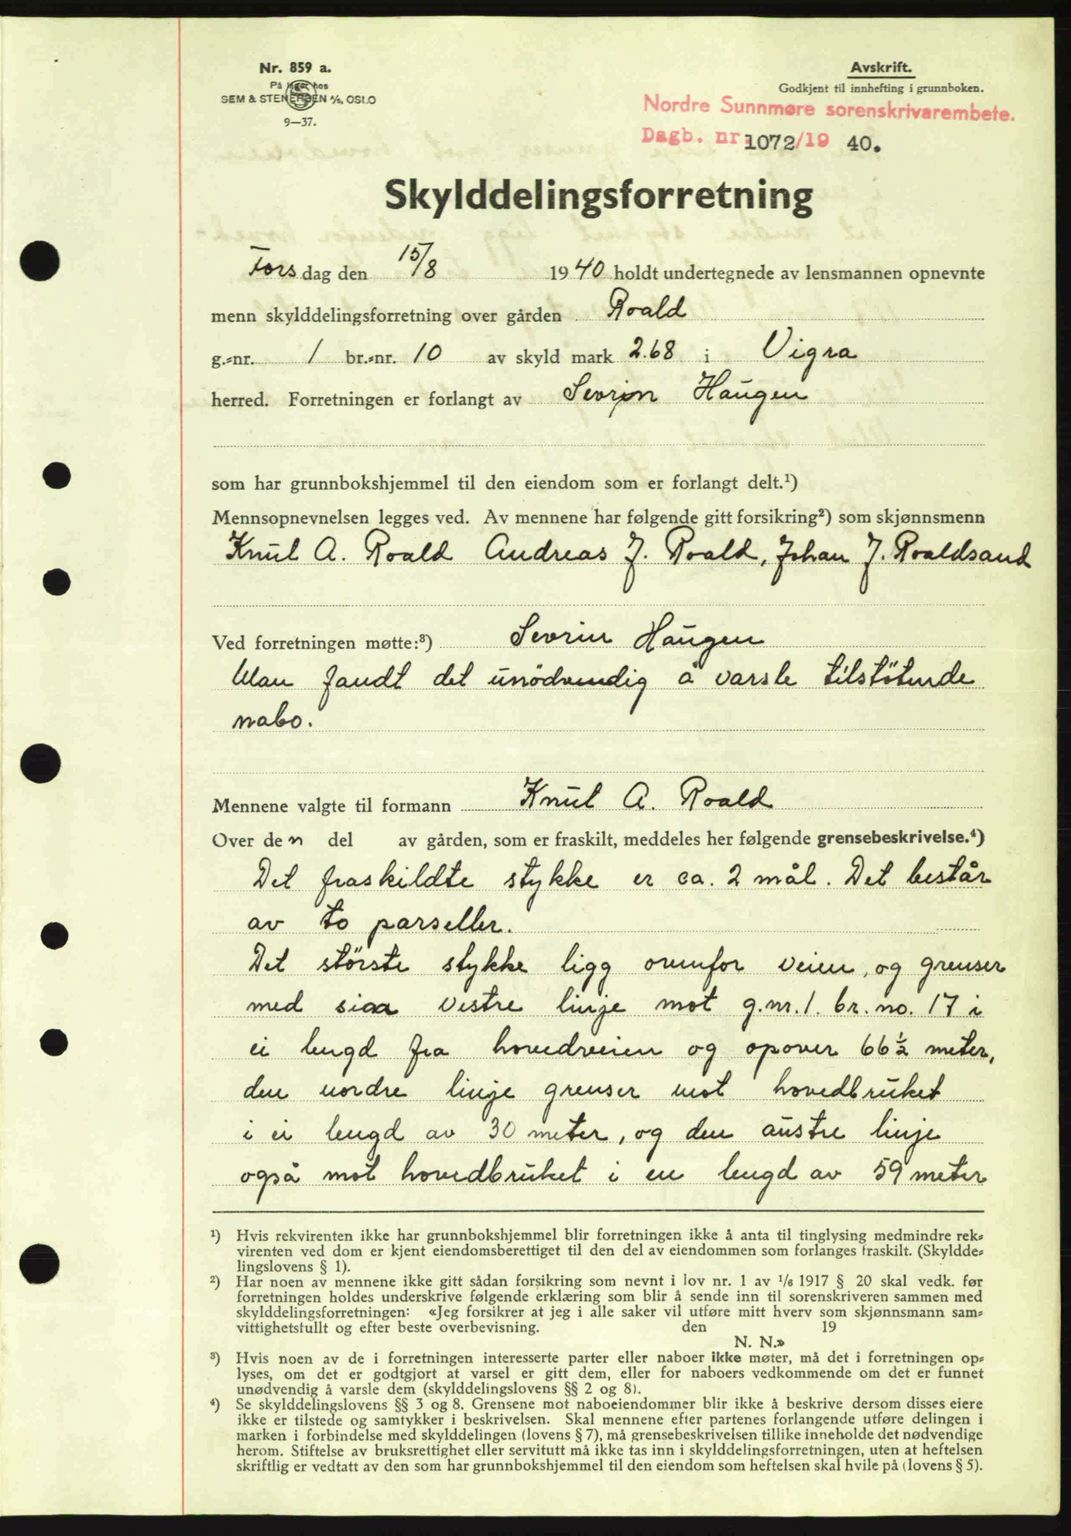 Nr. 859 a.
På lager hos
SEM & STENERSEN A/S, OSLO
9—37.
Avskrift.
Godkjent til innhefting i grunnboken.
Nordre Sunnmøre sorenskrivarembete.
Dagb. nr. 1072/19 40.
Skylddelingsforretning
Torsdag den 15/8 1940 holdt undertegnede av lensmannen opnevnte
menn skylddelingsforretning over gården Roald
g.=nr. 1 br.=nr. 10 av skyld mark 2.68 i Vigra
herred. Forretningen er forlangt av Sevrin Haugen
som har grunnbokshjemmel til den eiendom som er forlangt delt.¹)
Mennsopnevnelsen legges ved. Av mennene har følgende gitt forsikring²) som skjønnsmenn
Knut A. Roald Andreas J. Roald, Johan J. Roaldsand
Ved forretningen møtte:³) Sevrin Haugen
Man fandt det unödvendig å varsle tilstötende
nabo.
Mennene valgte til formann Knut A. Roald
Over den del av gården, som er fraskilt, meddeles her følgende grensebeskrivelse.⁴)
Det fraskildte stykke er ca. 2 mål. Det består
av to parseller.
Det störste stykke ligg ovenfor veien, og grenser
med sian vestre linje mot g.nr. 1. br. no. 17 i
ei lengd fra hovedveien og opover 66 ½ meter,
den nordre linje grenser mot hovedbruket
i ei lengd av 30 meter, og den austre linje
også mot hovedbruket i en lengd av 59 meter
¹) Hvis rekvirenten ikke har grunnbokshjemmel blir forretningen ikke å anta til tinglysing medmindre rek=
virenten ved dom er kjent eiendomsberettiget til den del av eiendommen som forlanges fraskilt. (Skyldde=
lingslovens § 1).
²) Har noen av mennene ikke gitt sådan forsikring som nevnt i lov nr. 1 av 1/6 1917 § 20 skal vedk. før
forretningen holdes underskrive følgende erklæring som blir å sende inn til sorenskriveren sammen med
skylddelingsforretningen: «Jeg forsikrer at jeg i alle saker vil utføre mitt hverv som skjønnsmann sam=
vittighetsfullt og efter beste overbevisning. den 19
N. N.»
³) Hvis noen av de i forretningen interesserte parter eller naboer ikke møter, må det i forretningen op=
lyses, om det er godtgjort at varsel er gitt dem, eller for naboers vedkommende om det er funnet
unødvendig å varsle dem (skylddelingslovens §§ 2 og 8).
⁴) Se skylddelingslovens §§ 3 og 8. Grensene mot naboeiendommer blir ikke å beskrive dersom disses eiere
ikke er tilstede og samtykker i beskrivelsen. Skal mennene efter partenes forlangende utføre delingen i
marken i forbindelse med skylddelingen (lovens § 7), må grensebeskrivelsen tillike inneholde det nødvendige
herom. Stiftelse av bruksrettighet eller servitutt må ikke tas inn i skylddelingsforretningen, uten at heftelsen
skriftlig er vedtatt av den som har grunnbokshjemmel til den eiendom som heftelsen skal hvile på (lovens § 5).